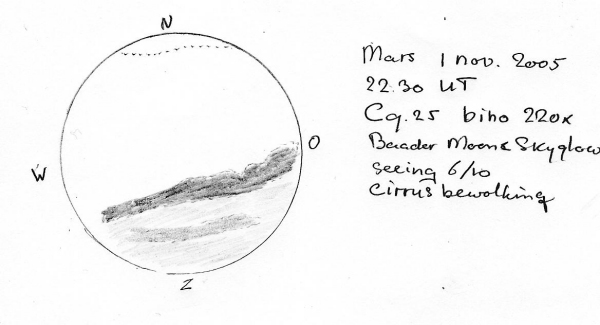 N
Mars 1 nov. 2005
22.30 UT
Cg. 25 bino 220x
Baader Moon & Skyglow
O
seeing 6/10
W
cirrus bewolking
Z